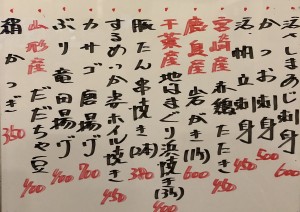 活〆しまあじ刺身 600
かつお刺身 500
活帆立刺身 450
宮崎産 赤鶏たたき
産 岩がき(1ケ) 600
千葉産 地はまぐり浜焼き(3ケ) 400
するめいか姿ホイル焼き 450
豚たん串焼き(2本) 380
カサゴ唐揚げ 700
ぶり竜田揚げ 400
山形産 だだちゃ豆 400
絹かつぎ 350